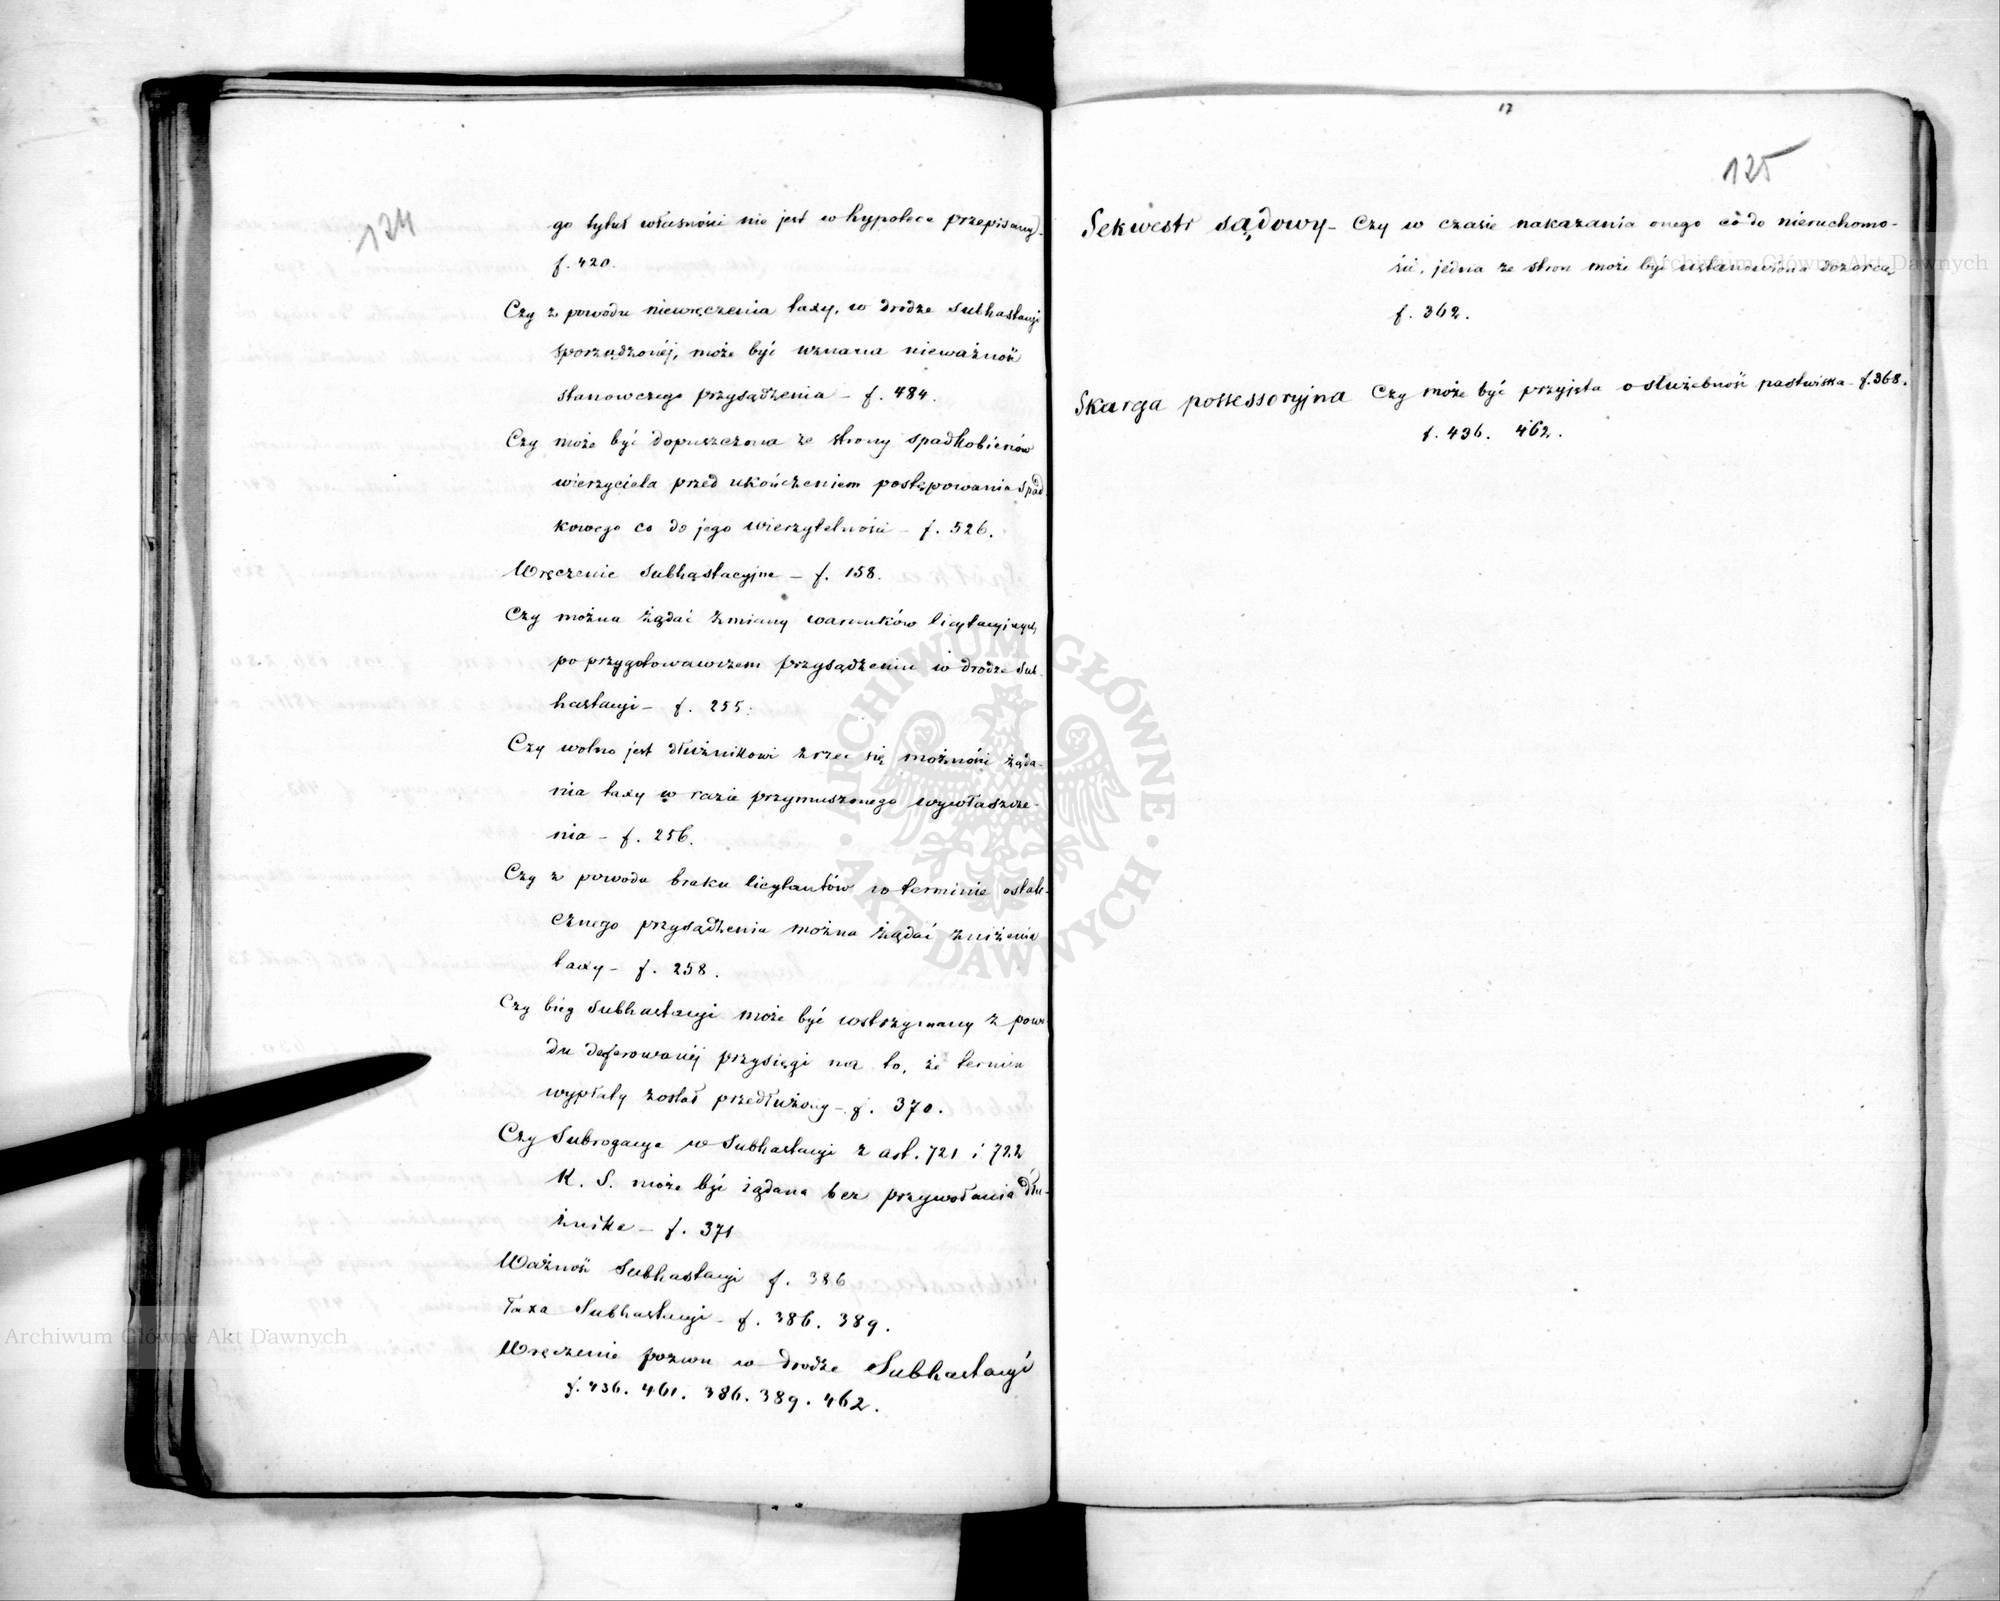 124
go tytuł własności nie jest w hypotece przepisany -
f. 420.
Czy z powodu niewręczenia taxy, w drodze Subhastacyi
sporządzonéj, może być uznana nieważność
stanowczego przysądzenia - f. 484.
Czy może być dopuszczona ze strony spadkobierców
wierzyciela przed ukończeniem postępowania spad
kowego co do jego wierzytelności - f. 526.
Wręczenie Subhastacyjne - f. 158.
Czy można żądać zmiany warunków licytacyjnych,
po przygotowawczem przysądzeniu w drodze Sub-
hastacyi - f. 255.
Czy wolno jest dłużnikowi zrzec się możności żąda-
nia taxy w razie przymuszonego wywłaszcze-
nia - f. 256.
Czy z powodu braku licytantów w terminie ostate-
cznego przysądzenia można żądać zniżenia
taxy - f. 258.
Czy bieg Subhastacyi może być wstrzymany z powo-
du deferowanéj przysięgi na to, że termin
wypłaty został przedłużony - f. 370.
Czy Subrogacya w Subhastacyi z art. 721 i 722
K. S. może być żądana bez przywołania dłu-
żnika - f. 371
Ważność Subhastacyi f. 386
Taxa Subhastacyi - f. 386. 389.
Wręczenie pozwu w drodze Subhastacyi
f. 436. 461. 386. 389. 462.
17
125
Sekwestr sądowy - Czy w czasie nakazania onego co do nieruchomo-
ści, jedna ze stron może być ustanowiona dozorcą
f. 362.
Skarga possessoryjna Czy może być przyjęta o służebność pastwiska - f. 368.
f. 436. 462.
Archiwum Główne Akt Dawnych
ARCHIWUM GŁÓWNE · AKT DAWNYCH ·
Archiwum Główne Akt Dawnych